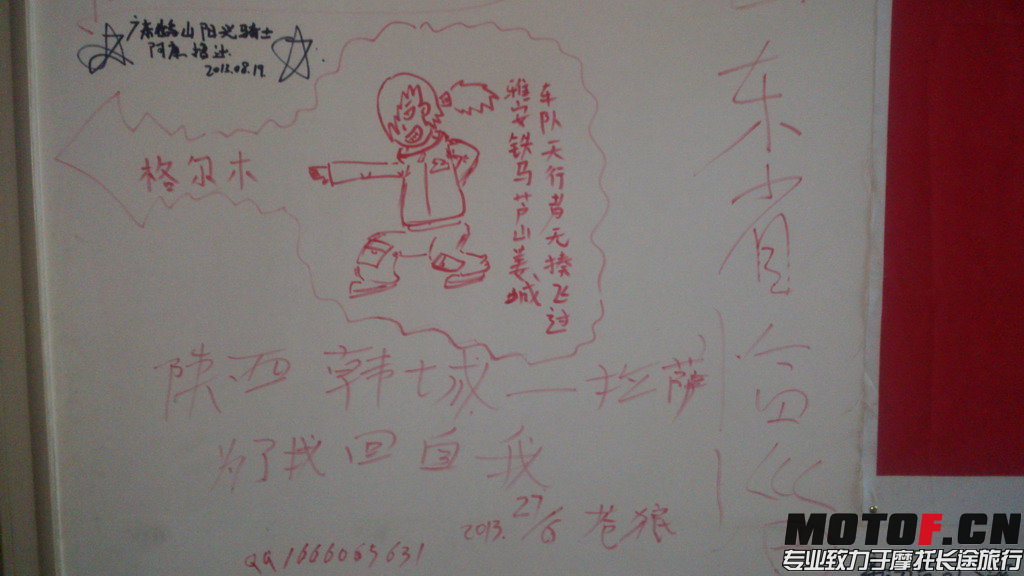 广东鹤山阳光骑士
2013.08.19.
格尔木
车队天行者无揍飞过
雅安铁马芦山姜城
陕西韩城—拉萨
为了找回自我
2013. 27/6 苍狼
QQ1666065631
东省
MOTOF.CN
专业致力于摩托长途旅行